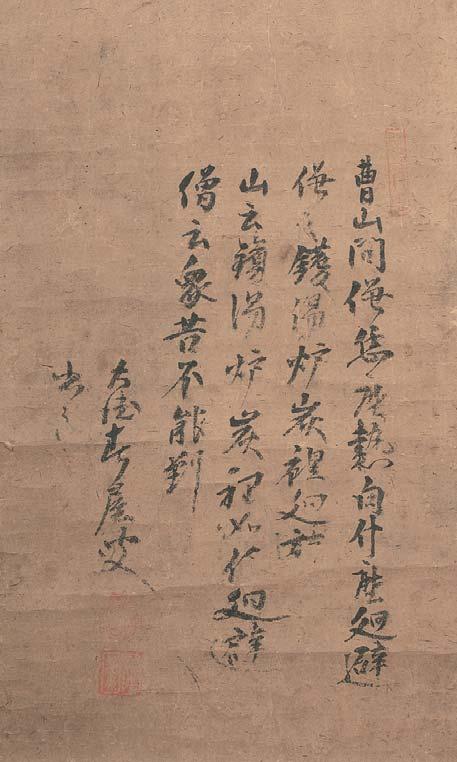 曹山問僧恁麼熱向什麼廻避
僧云鑊湯炉炭裡廻避
山云鑊湯炉炭裡如何廻避
僧云衆苦不能到
大徳春屋叟
書之